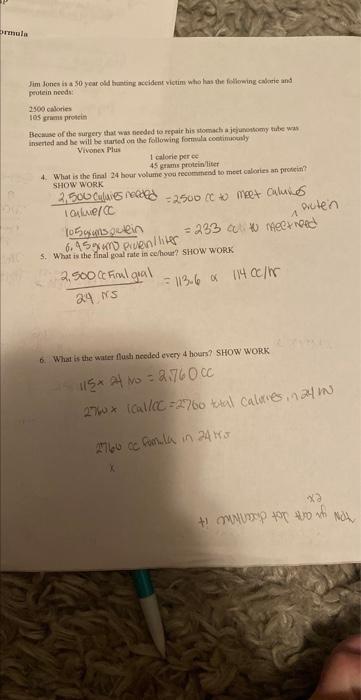 ormula
Jim Jones is a 50 year old hunting accident victim who has the following calorie and
protein needs:
2500 calories
105 grams protein
Because of the surgery that was needed to repair his stomach a jejunostomy tube was
inserted and he will be started on the following formula continuously
Vivonex Plus
1 calorie per cc
45 grams protein/liter
4. What is the final 24 hour volume you recommend to meet calories an protein?
SHOW WORK
2,500 calories needed = 2500 cc to meet calories
1 calorie/cc
105 grams protein = 233 to meet need protein
5. What is the final goal rate in cc/hour? SHOW WORK
2,500 cc Final goal = 113.6 or 114 cc/hr
24 hrs
6. What is the water flush needed every 4 hours? SHOW WORK
115 x 24 = 2,760 cc
2760 x 1cal/cc = 2760 total calories in 24
2760 cc formula in 24 hrs
x